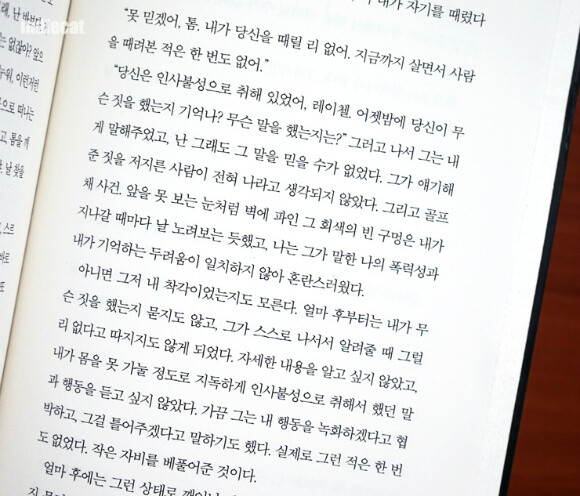 indiecat
내가 자기를 때렸다
"못 믿겠어, 톰. 내가 당신을 때릴 리 없어. 지금까지 살면서 사람
을 때려본 적은 한 번도 없어."
"당신은 인사불성으로 취해 있었어, 레이첼. 어젯밤에 당신이 무
슨 짓을 했는지 기억나? 무슨 말을 했는지는?" 그러고 나서 그는 내
게 말해주었고, 난 그래도 그 말을 믿을 수가 없었다. 그가 얘기해
준 짓을 저지른 사람이 전혀 나라고 생각되지 않았다. 그리고 골프
채 사건. 앞을 못 보는 눈처럼 벽에 파인 그 회색의 빈 구멍은 내가
지나갈 때마다 날 노려보는 듯했고, 나는 그가 말한 나의 폭력성과
내가 기억하는 두려움이 일치하지 않아 혼란스러웠다.
아니면 그저 내 착각이었는지도 모른다. 얼마 후부터는 내가 무
슨 짓을 했는지 묻지도 않고, 그가 스스로 나서서 알려줄 때 그럴
리 없다고 따지지도 않게 되었다. 자세한 내용을 알고 싶지 않았고,
내가 몸을 못 가눌 정도로 지독하게 인사불성으로 취해서 했던 말
과 행동을 듣고 싶지 않았다. 가끔 그는 내 행동을 녹화하겠다고 협
박하고, 그걸 틀어주겠다고 말하기도 했다. 실제로 그런 적은 한 번
도 없었다. 작은 자비를 베풀어준 것이다.
얼마 후에는 그런 상태로